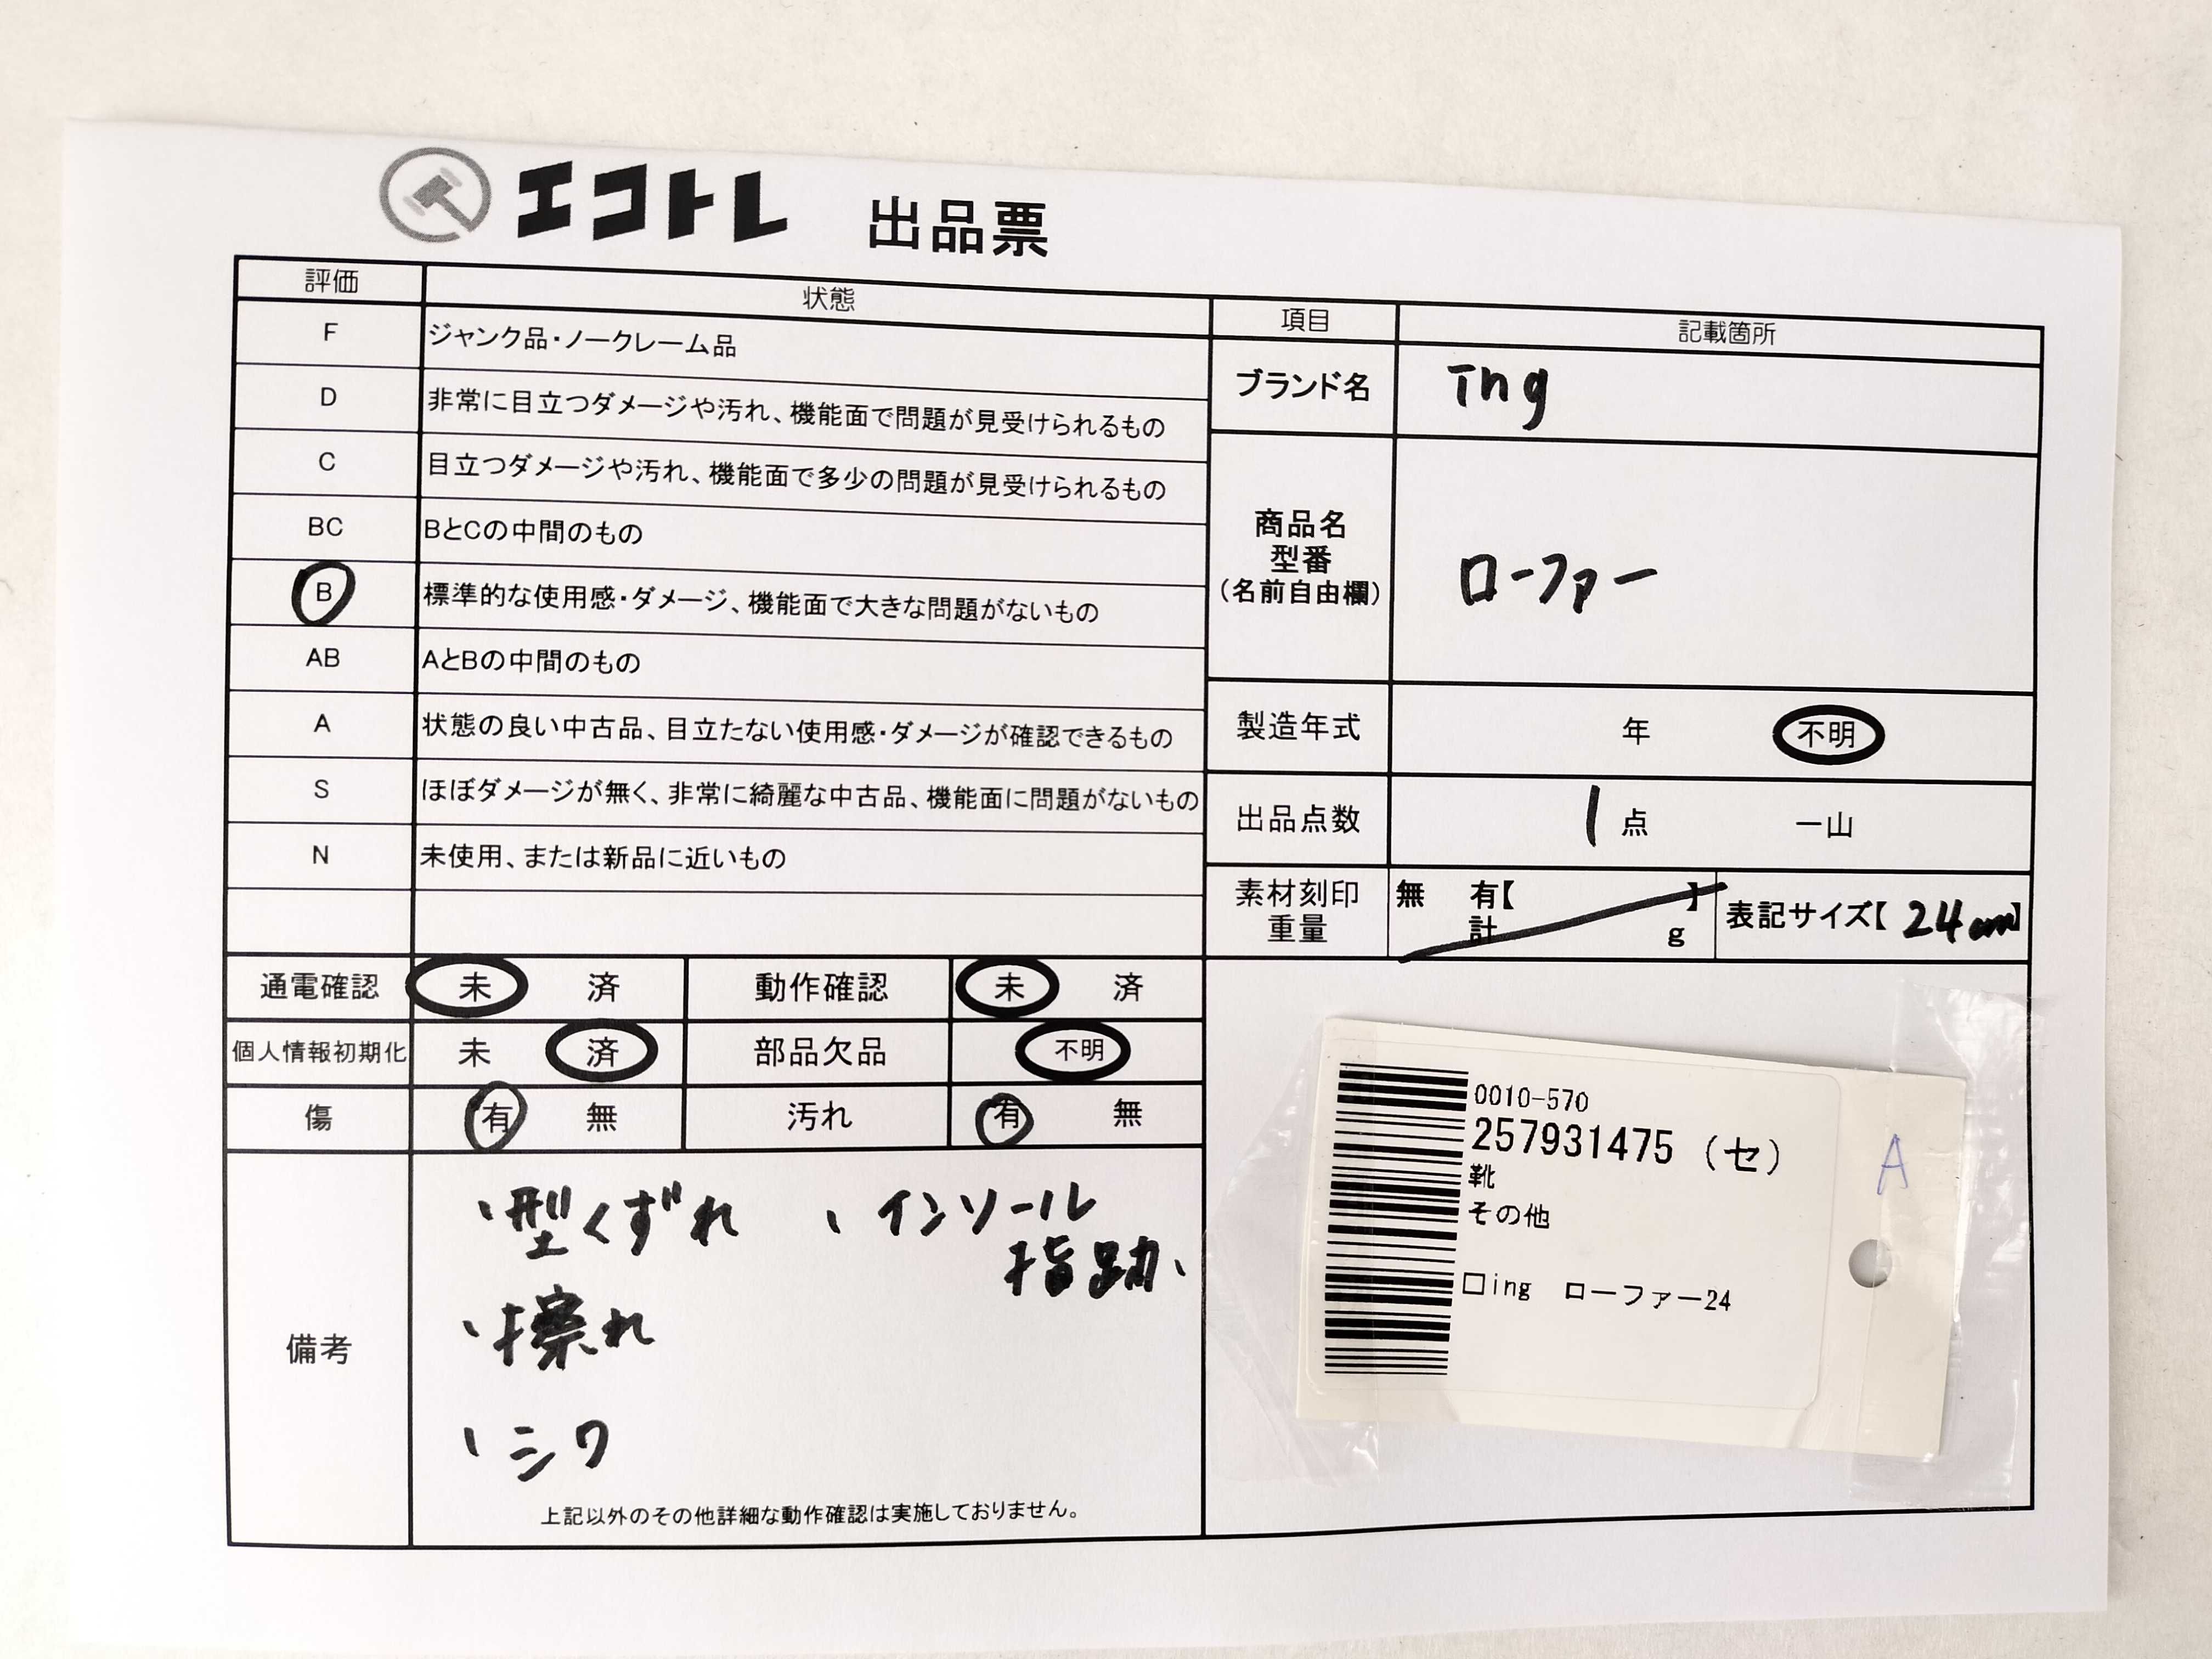 エコトレ 出品票
評価 状態
F ジャンク品・ノークレーム品
D 非常に目立つダメージや汚れ、機能面で問題が見受けられるもの
C 目立つダメージや汚れ、機能面で多少の問題が見受けられるもの
BC BとCの中間のもの
B 標準的な使用感・ダメージ、機能面で大きな問題がないもの
AB AとBの中間のもの
A 状態の良い中古品、目立たない使用感・ダメージが確認できるもの
S ほぼダメージが無く、非常に綺麗な中古品、機能面に問題がないもの
N 未使用、または新品に近いもの
項目 記載箇所
ブランド名 Ing
商品名
型番
(名前自由欄)
ローファー
製造年式 年 不明
出品点数 1点 一山
素材刻印
重量
無 有【 】
計 g
表記サイズ【24cm】
通電確認 未 済 動作確認 未 済
個人情報初期化 未 済 部品欠品 不明
傷 有 無 汚れ 有 無
備考
・型くずれ ・インソール
指跡、
・擦れ
・シワ
上記以外のその他詳細な動作確認は実施しておりません。
0010-570
257931475 (セ)
靴
その他
□ing ローファー24
A